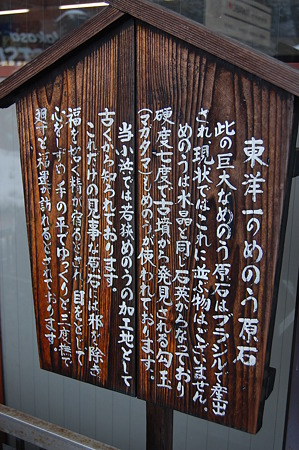 東洋一のめのう原石
此の巨大めのう原石はブラジルで産出
され現状ではこれに並ぶ物はございません。
めのうは水晶と同じ石英からなっており
硬度七度で古墳から発見される勾玉
(マガタマ)もめのうが使われております。
当小浜では若狭めのうの加工地として
古くから知られております。
これだけの見事な原石には邪を除き
福を招く精が宿るとされ目をとじて
心をしずめ手の平でゆっくりと三度撫で
ますと福運が訪れるとされております。